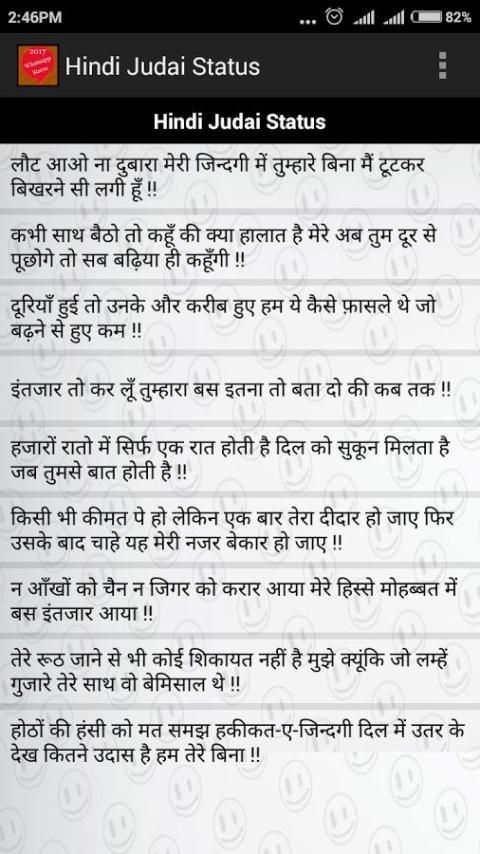 2:46PM
82%
2017
Whatsapp
Status
Hindi Judai Status
Hindi Judai Status
लौट आओ ना दुबारा मेरी जिन्दगी में तुम्हारे बिना मैं टूटकर
बिखरने सी लगी हूँ !!
कभी साथ बैठो तो कहूँ की क्या हालात है मेरे अब तुम दूर से
पूछोगे तो सब बढ़िया ही कहूँगी !!
दूरियाँ हुई तो उनके और करीब हुए हम ये कैसे फ़ासले थे जो
बढ़ने से हुए कम !!
इंतजार तो कर लूँ तुम्हारा बस इतना तो बता दो की कब तक !!
हजारों रातो में सिर्फ एक रात होती है दिल को सुकून मिलता है
जब तुमसे बात होती है !!
किसी भी कीमत पे हो लेकिन एक बार तेरा दीदार हो जाए फिर
उसके बाद चाहे यह मेरी नजर बेकार हो जाए !!
न आँखों को चैन न जिगर को करार आया मेरे हिस्से मोहब्बत में
बस इंतजार आया !!
तेरे रूठ जाने से भी कोई शिकायत नहीं है मुझे क्यूंकि जो लम्हें
गुजारे तेरे साथ वो बेमिसाल थे !!
होठों की हंसी को मत समझ हकीकत-ए-जिन्दगी दिल में उतर के
देख कितने उदास है हम तेरे बिना !!